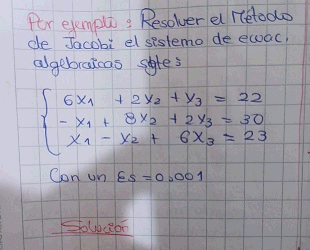 Por ejemplo: Resolver el Método
de Jacobi el sistema de ecuac.
algebraicas sgtes
6x₁ + 2x₂ + x₃ = 22
- x₁ + 8x₂ + 2x₃ = 30
x₁ - x₂ + 6x₃ = 23
Con un Es = 0,001
Solución